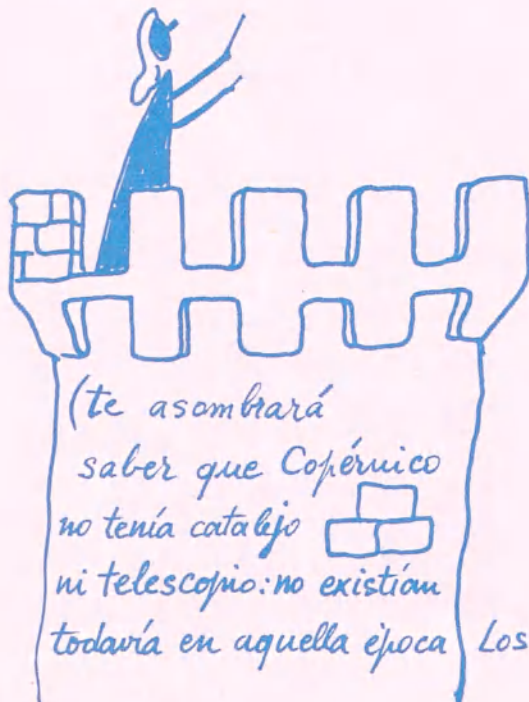 (te asombrará
saber que Copérnico
no tenía catalejo
ni telescopio: no existían
todavía en aquella época Los